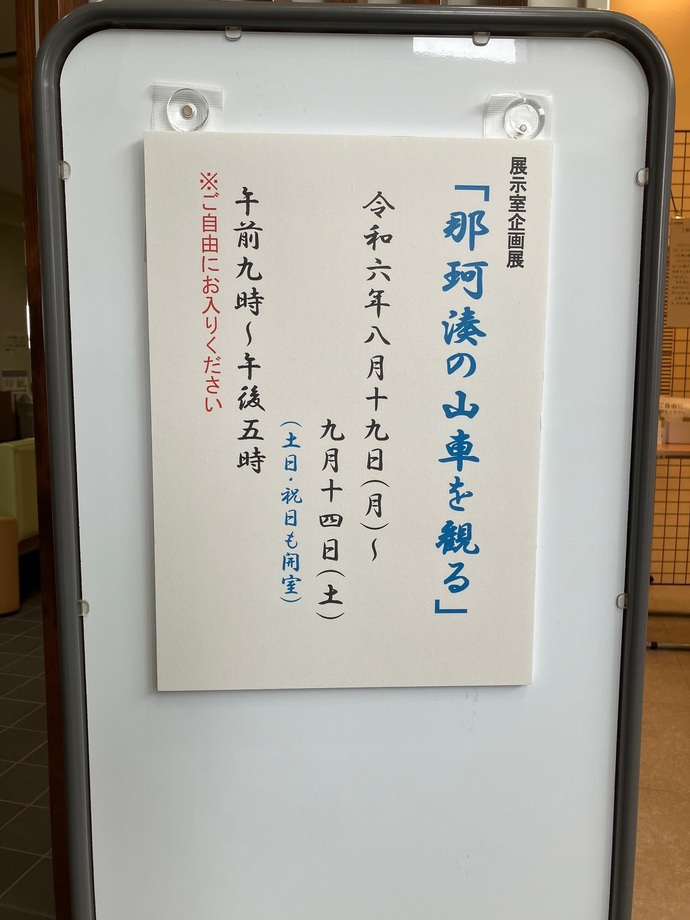 展示室企画展
「那珂湊の山車を観る」
令和六年八月十九日(月)～
九月十四日(土)
(土日・祝日も開室)
午前九時～午後五時
※ご自由にお入りください